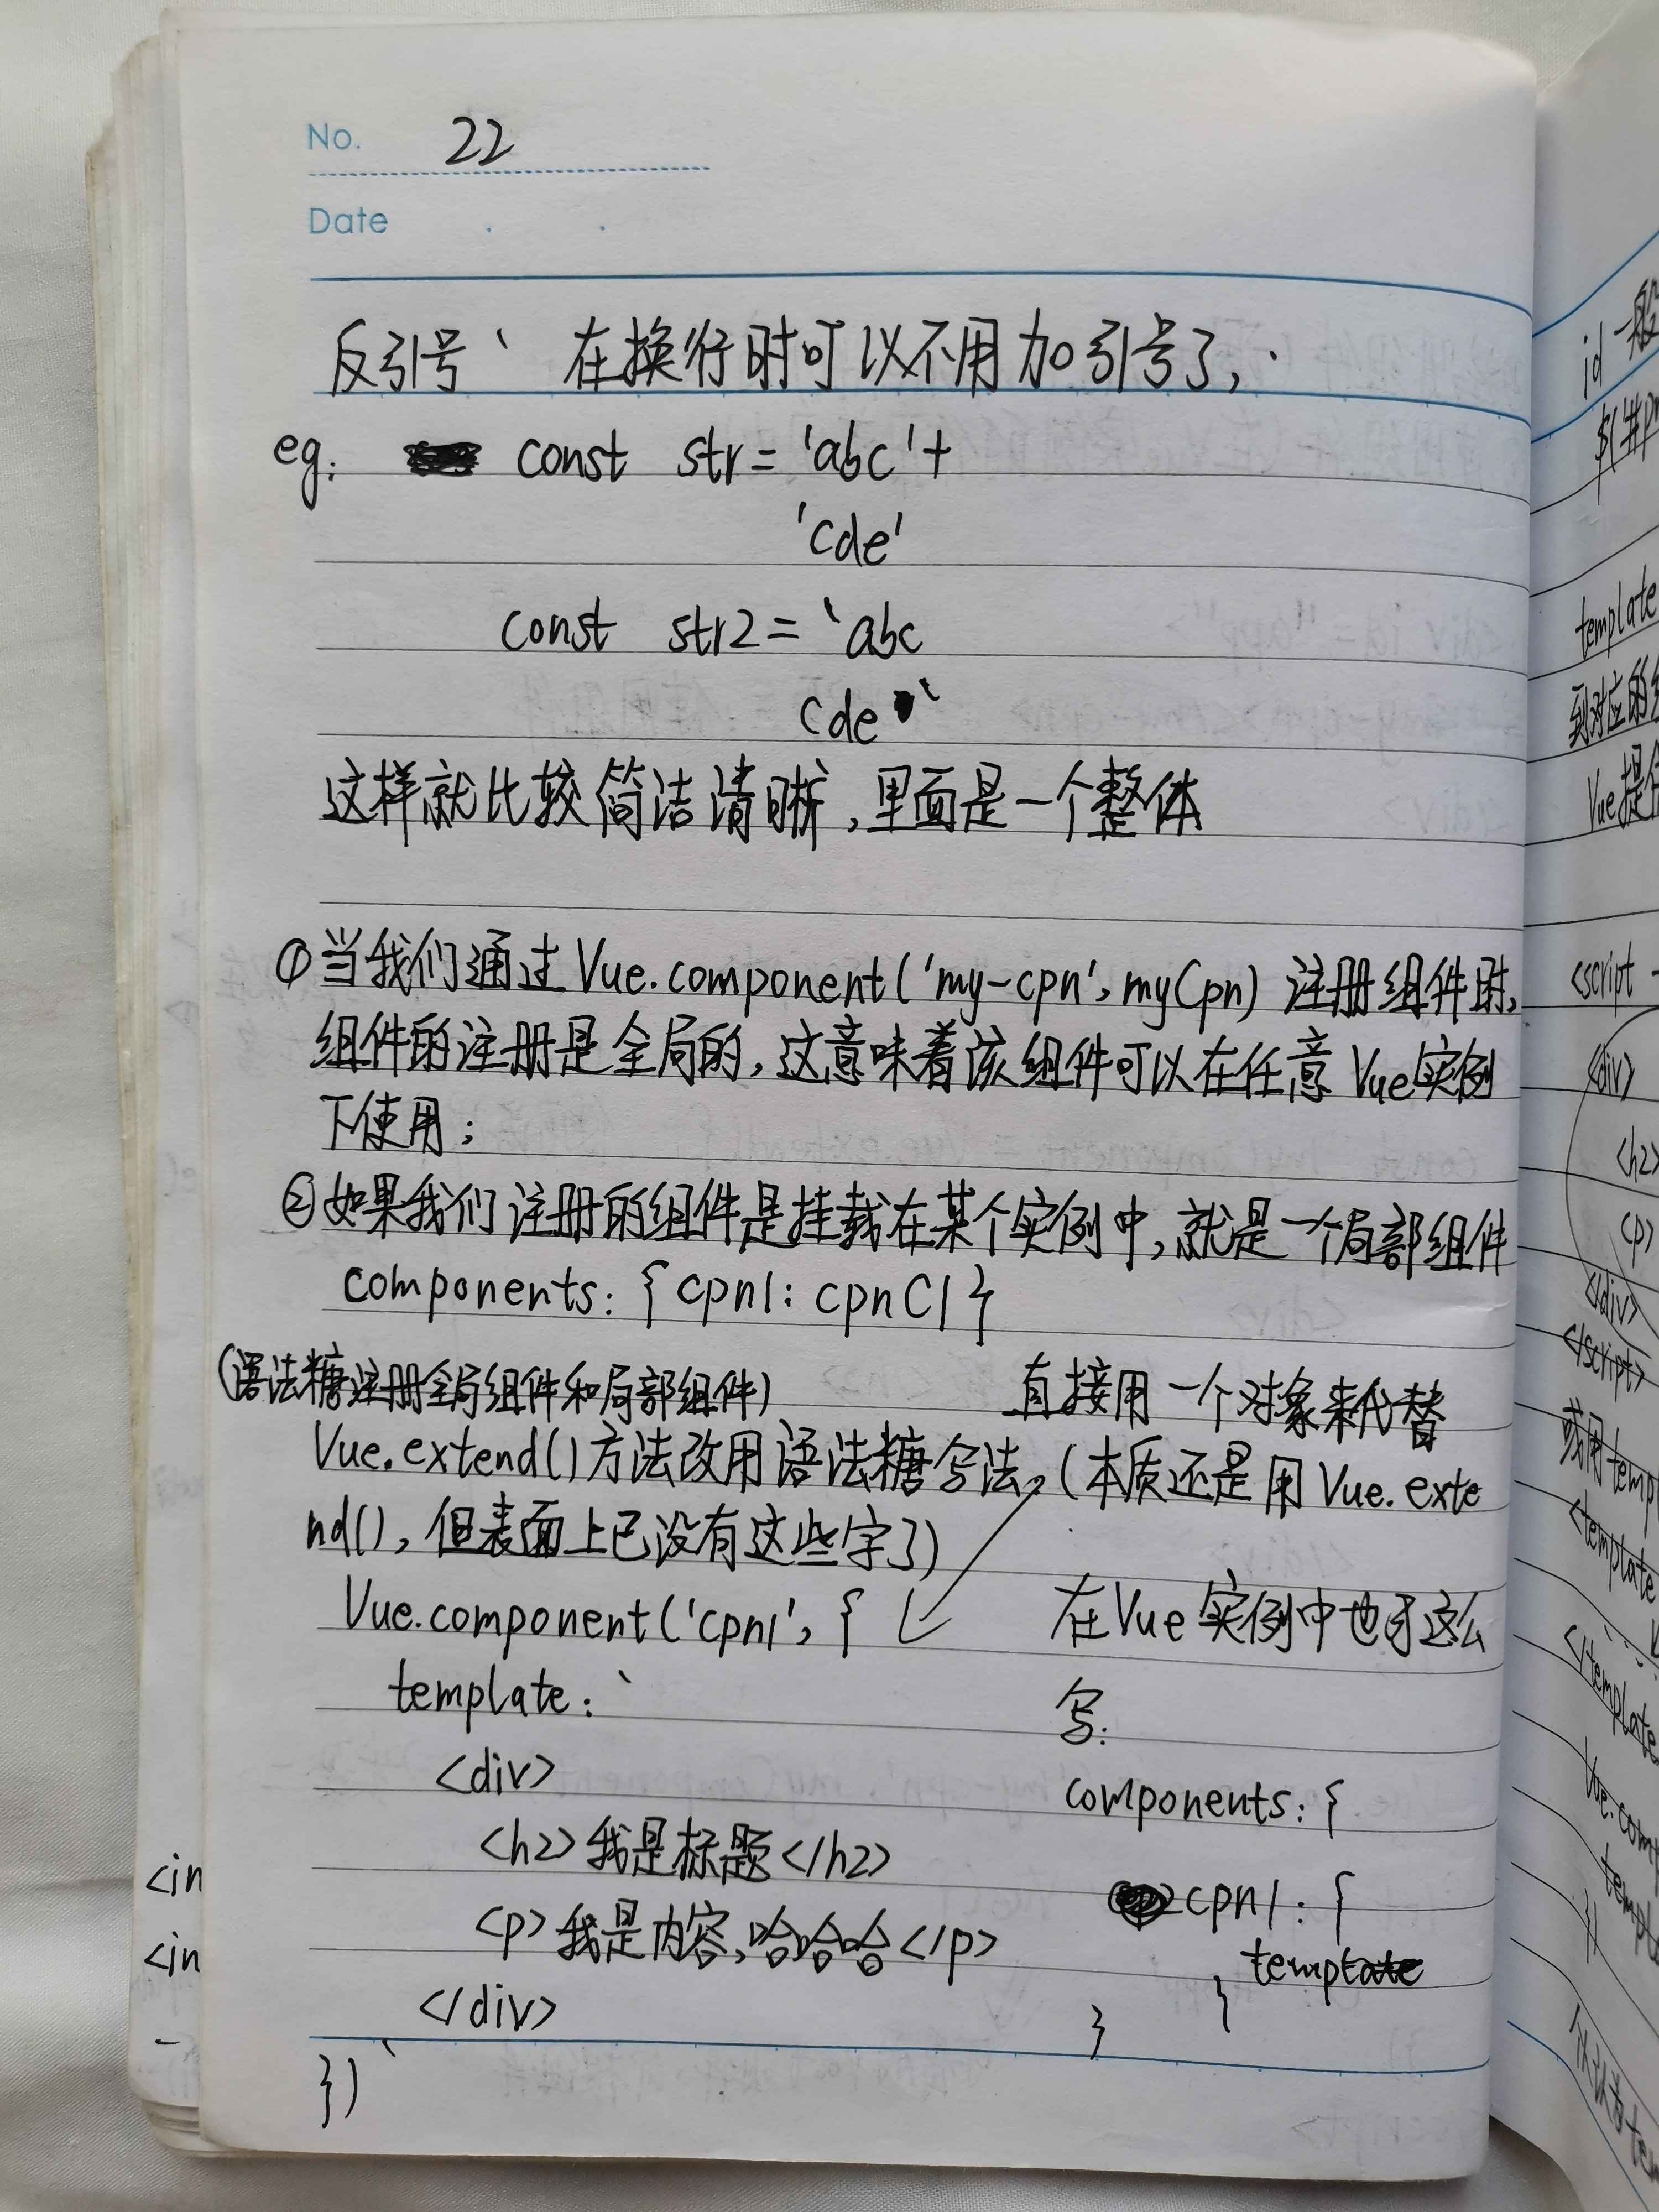 No. 22
Date
反引号 ` 在换行时可以不用加引号了,
eg: const str = 'abc' +
'cde'
const str2 = `abc
cde`
这样就比较简洁清晰,里面是一个整体
①当我们通过Vue.component('my-cpn', myCpn) 注册组件时,
组件的注册是全局的,这意味着该组件可以在任意Vue实例
下使用;
②如果我们注册的组件是挂载在某个实例中,就是一个局部组件
components: { cpn1: cpnC1 }
(语法糖注册全局组件和局部组件) 直接用一个对象来代替
Vue.extend()方法改用语法糖写法。(本质还是用Vue.exte
nd(),但表面上已没有这些字了)
Vue.component('cpn1', {
template: `
<div>
<h2>我是标题</h2>
<p>我是内容,哈哈哈</p>
</div>
`
})
在Vue实例中也可这么
写:
components: {
cpn1: {
template
}
}
<in
<in
id 一般
template
到对应的
Vue提供
<script
<div>
<h2>
<p>
</div>
</script>
或用temp
<template
</template
Vue.com
templ
})